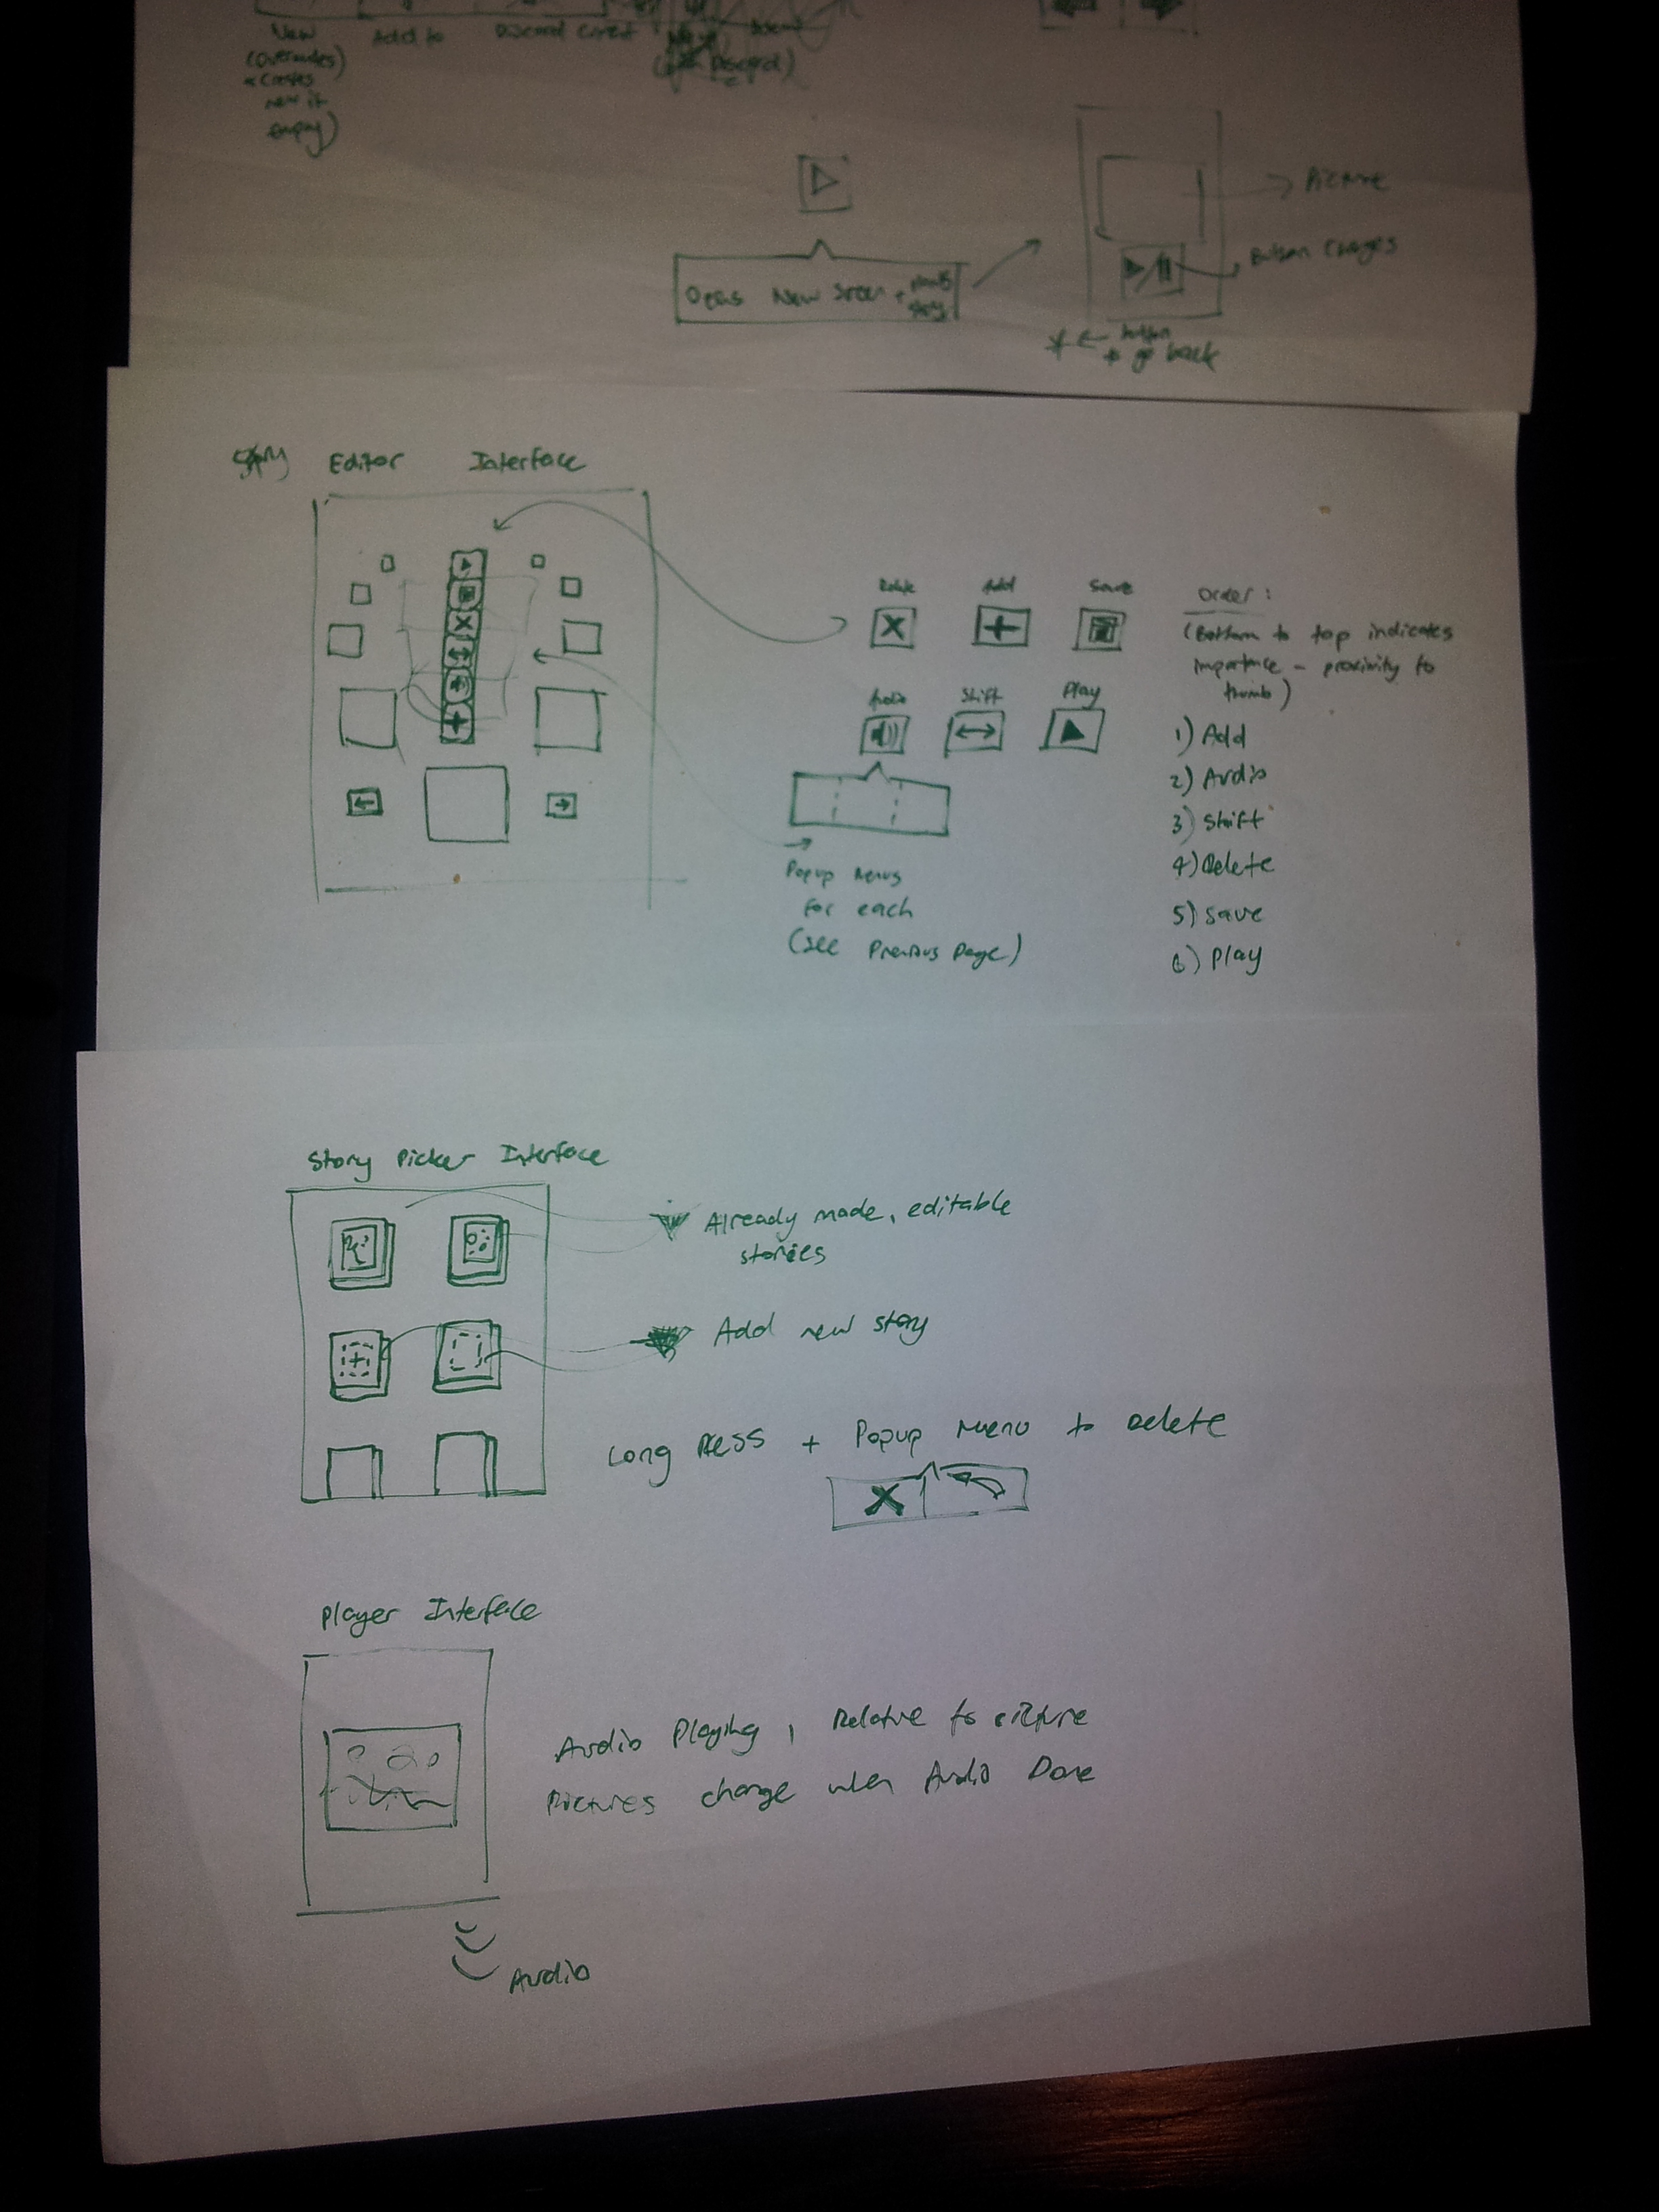 New
Add to
Discard
(Overwrites)
Discard)
new if
empty)
Picture
Button Changes
Opens New
story
button
go back
Story Editor Interface
Add
Save
Audio
Shift
Play
Popup Menus
for each
(see Previous page)
Order:
(Bottom to top indicates
importance - proximity to
thumb)
1) Add
2) Audio
3) Shift
4) Delete
5) Save
6) Play
Story Picker Interface
Already made, editable
stories
Add new story
Long Press + Popup Menu to Delete
Player Interface
Audio Playing, Relative to picture
Pictures change when Audio Done
Audio